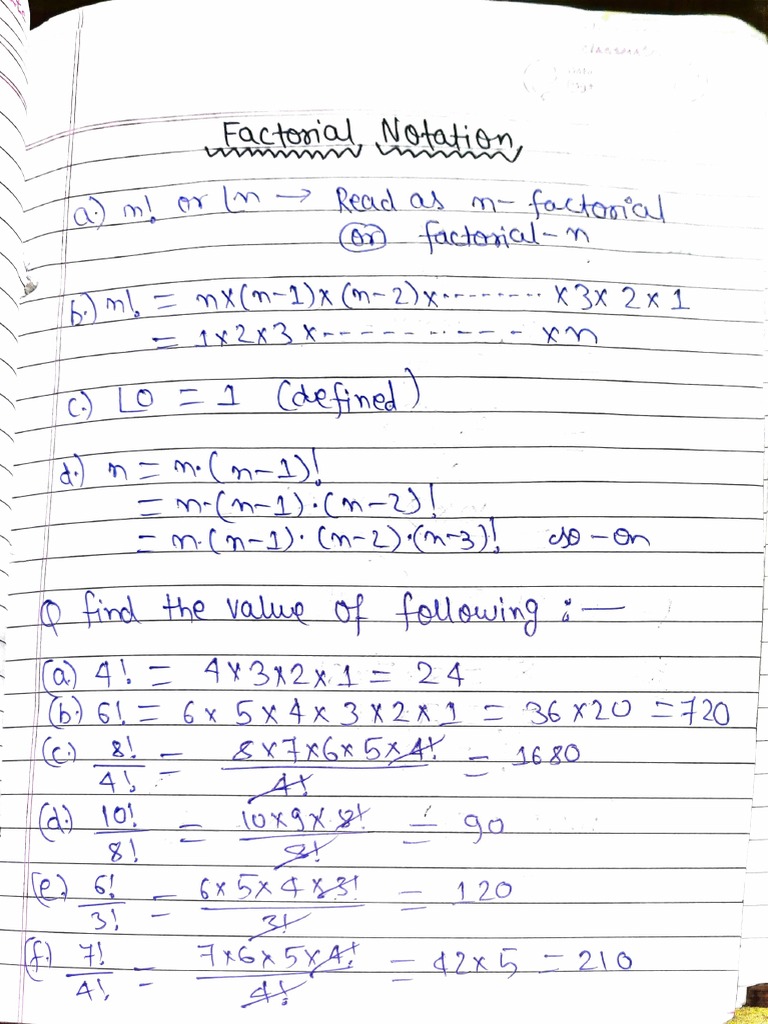 Factorial Notation
a.) n! or Ln → Read as n-factorial
(or) factorial-n
b.) n! = n×(n-1)×(n-2)×-------- ×3×2×1
= 1×2×3×------------ ×n
c.) L0 = 1 (defined)
d.) n = n·(n-1)!
= n·(n-1)·(n-2)!
= n·(n-1)·(n-2)·(n-3)! so-on
Q find the value of following :—
(a.) 4! = 4×3×2×1 = 24
(b.) 6! = 6×5×4×3×2×1 = 36×20 = 720
(c.) 8!/4! = 8×7×6×5×4!/4! = 1680
(d.) 10!/8! = 10×9×8!/8! = 90
(e.) 6!/3! = 6×5×4×3!/3! = 120
(f.) 7!/4! = 7×6×5×4!/4! = 42×5 = 210